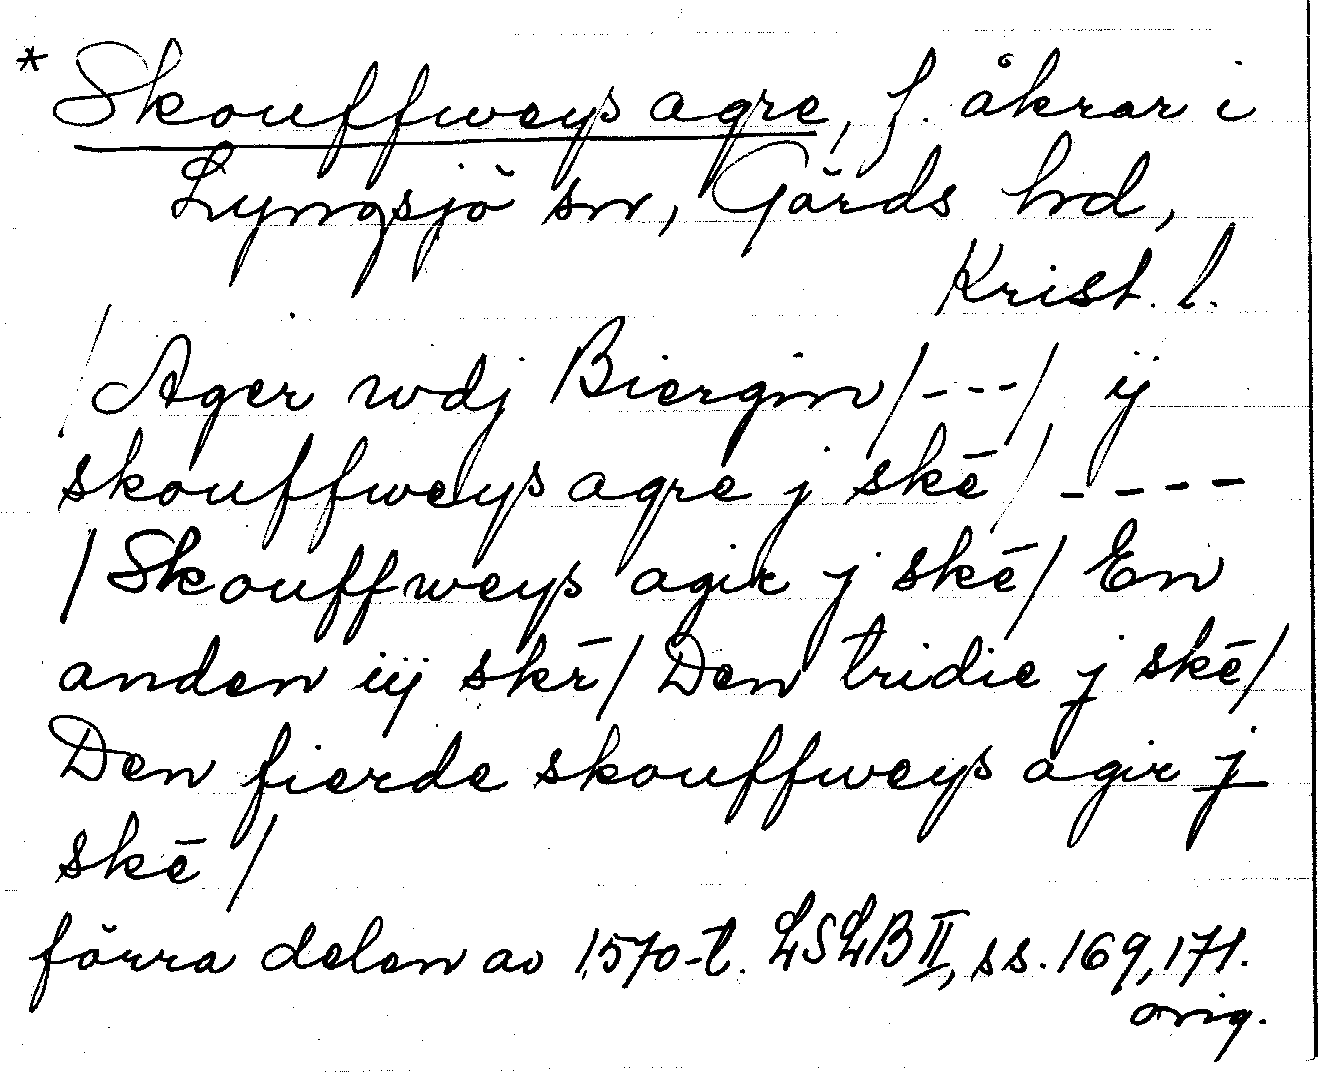 * Skouffweys agre, f. åkrar i
Lyngsjö sn, Gärds hd,
Krist. l.
/ Ager wdj Biergin /---/ ij
skouffweys agre j skē / ----
/ Skouffweys agir j skē / En
anden iij skē / Den tridie j skē /
Den fierde skouffweys agir j
skē /
förra delen av 1570-t. LSLB II, ss. 169, 171.
orig.